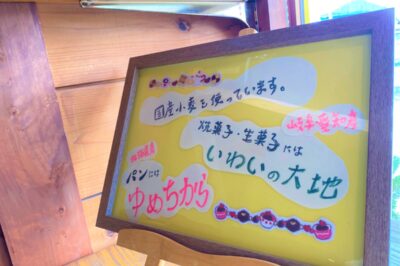 国産小麦を使っています。
岐阜・愛知産
焼菓子・生菓子には
いわいの大地
北海道産
パンには
ゆめちから